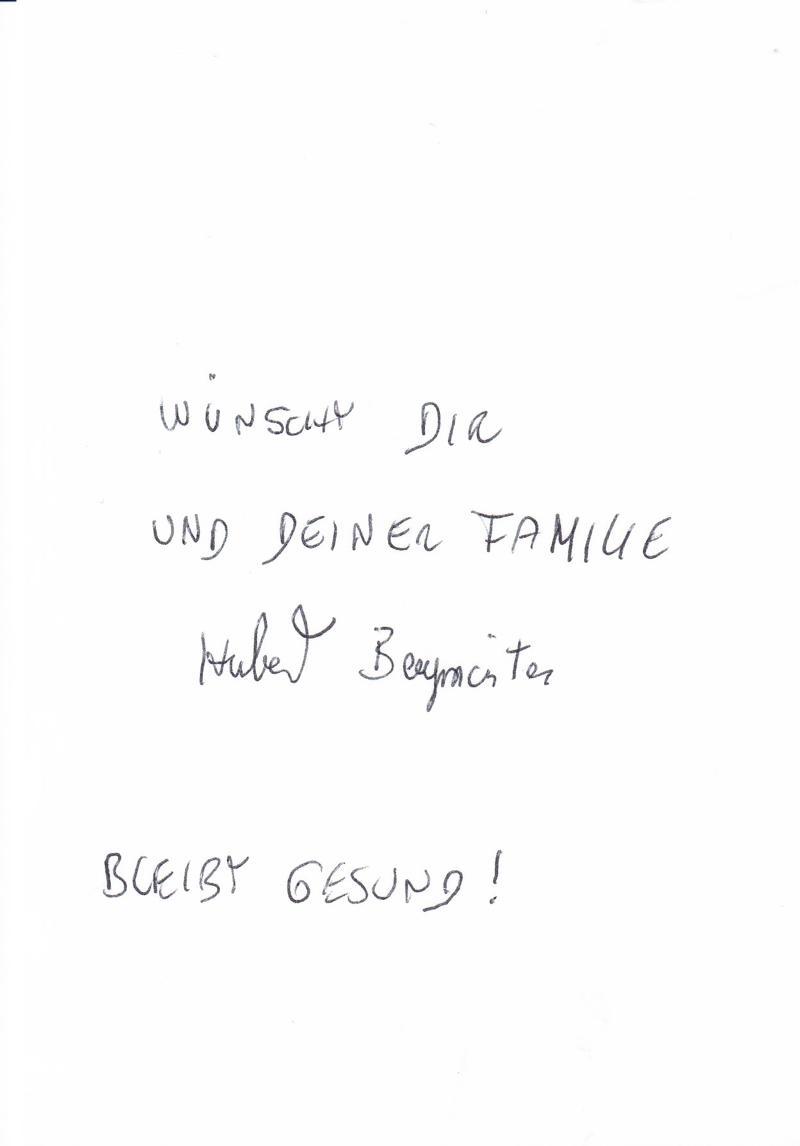 WÜNSCHT DIR
UND DEINER FAMILIE
Hubert
BLEIBT GESUND!